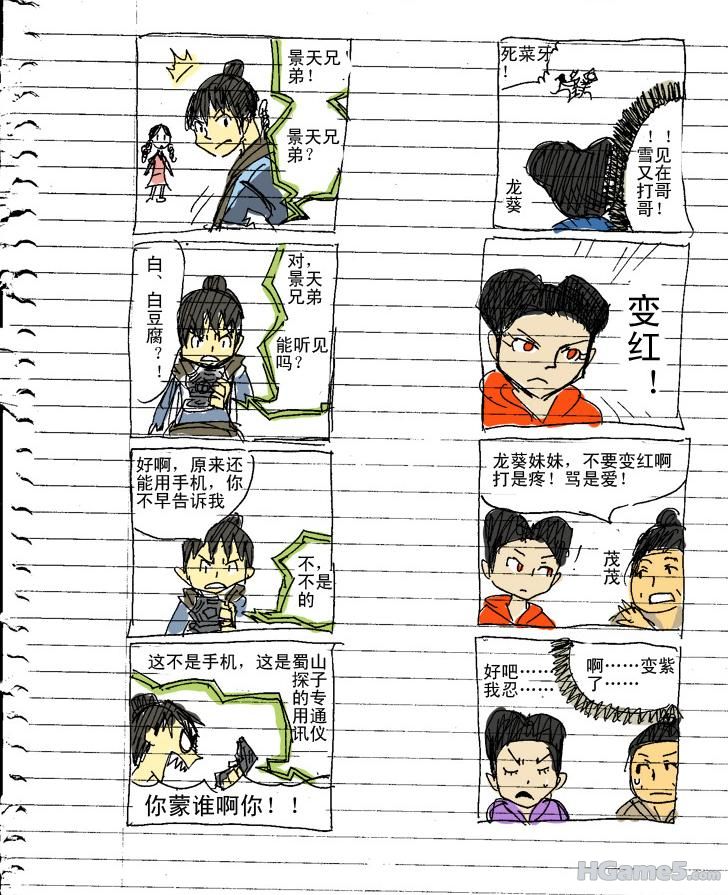 景天兄
弟！
景天兄
弟？
白、白豆腐？！
对，
景天
兄弟
能听见
吗？
好啊，原来还
能用手机，你
不早告诉我
不，
不是
的
这不是手机，这是蜀山
探子
的专
用通
讯仪
你蒙谁啊你！！
死菜牙
！
！！
雪见
又在
打哥
哥！
龙葵
变红！
龙葵妹妹，不要变红啊
打是疼！骂是爱！
！
茂茂
好吧……
我忍……
啊……变紫
了……
HGame5.com